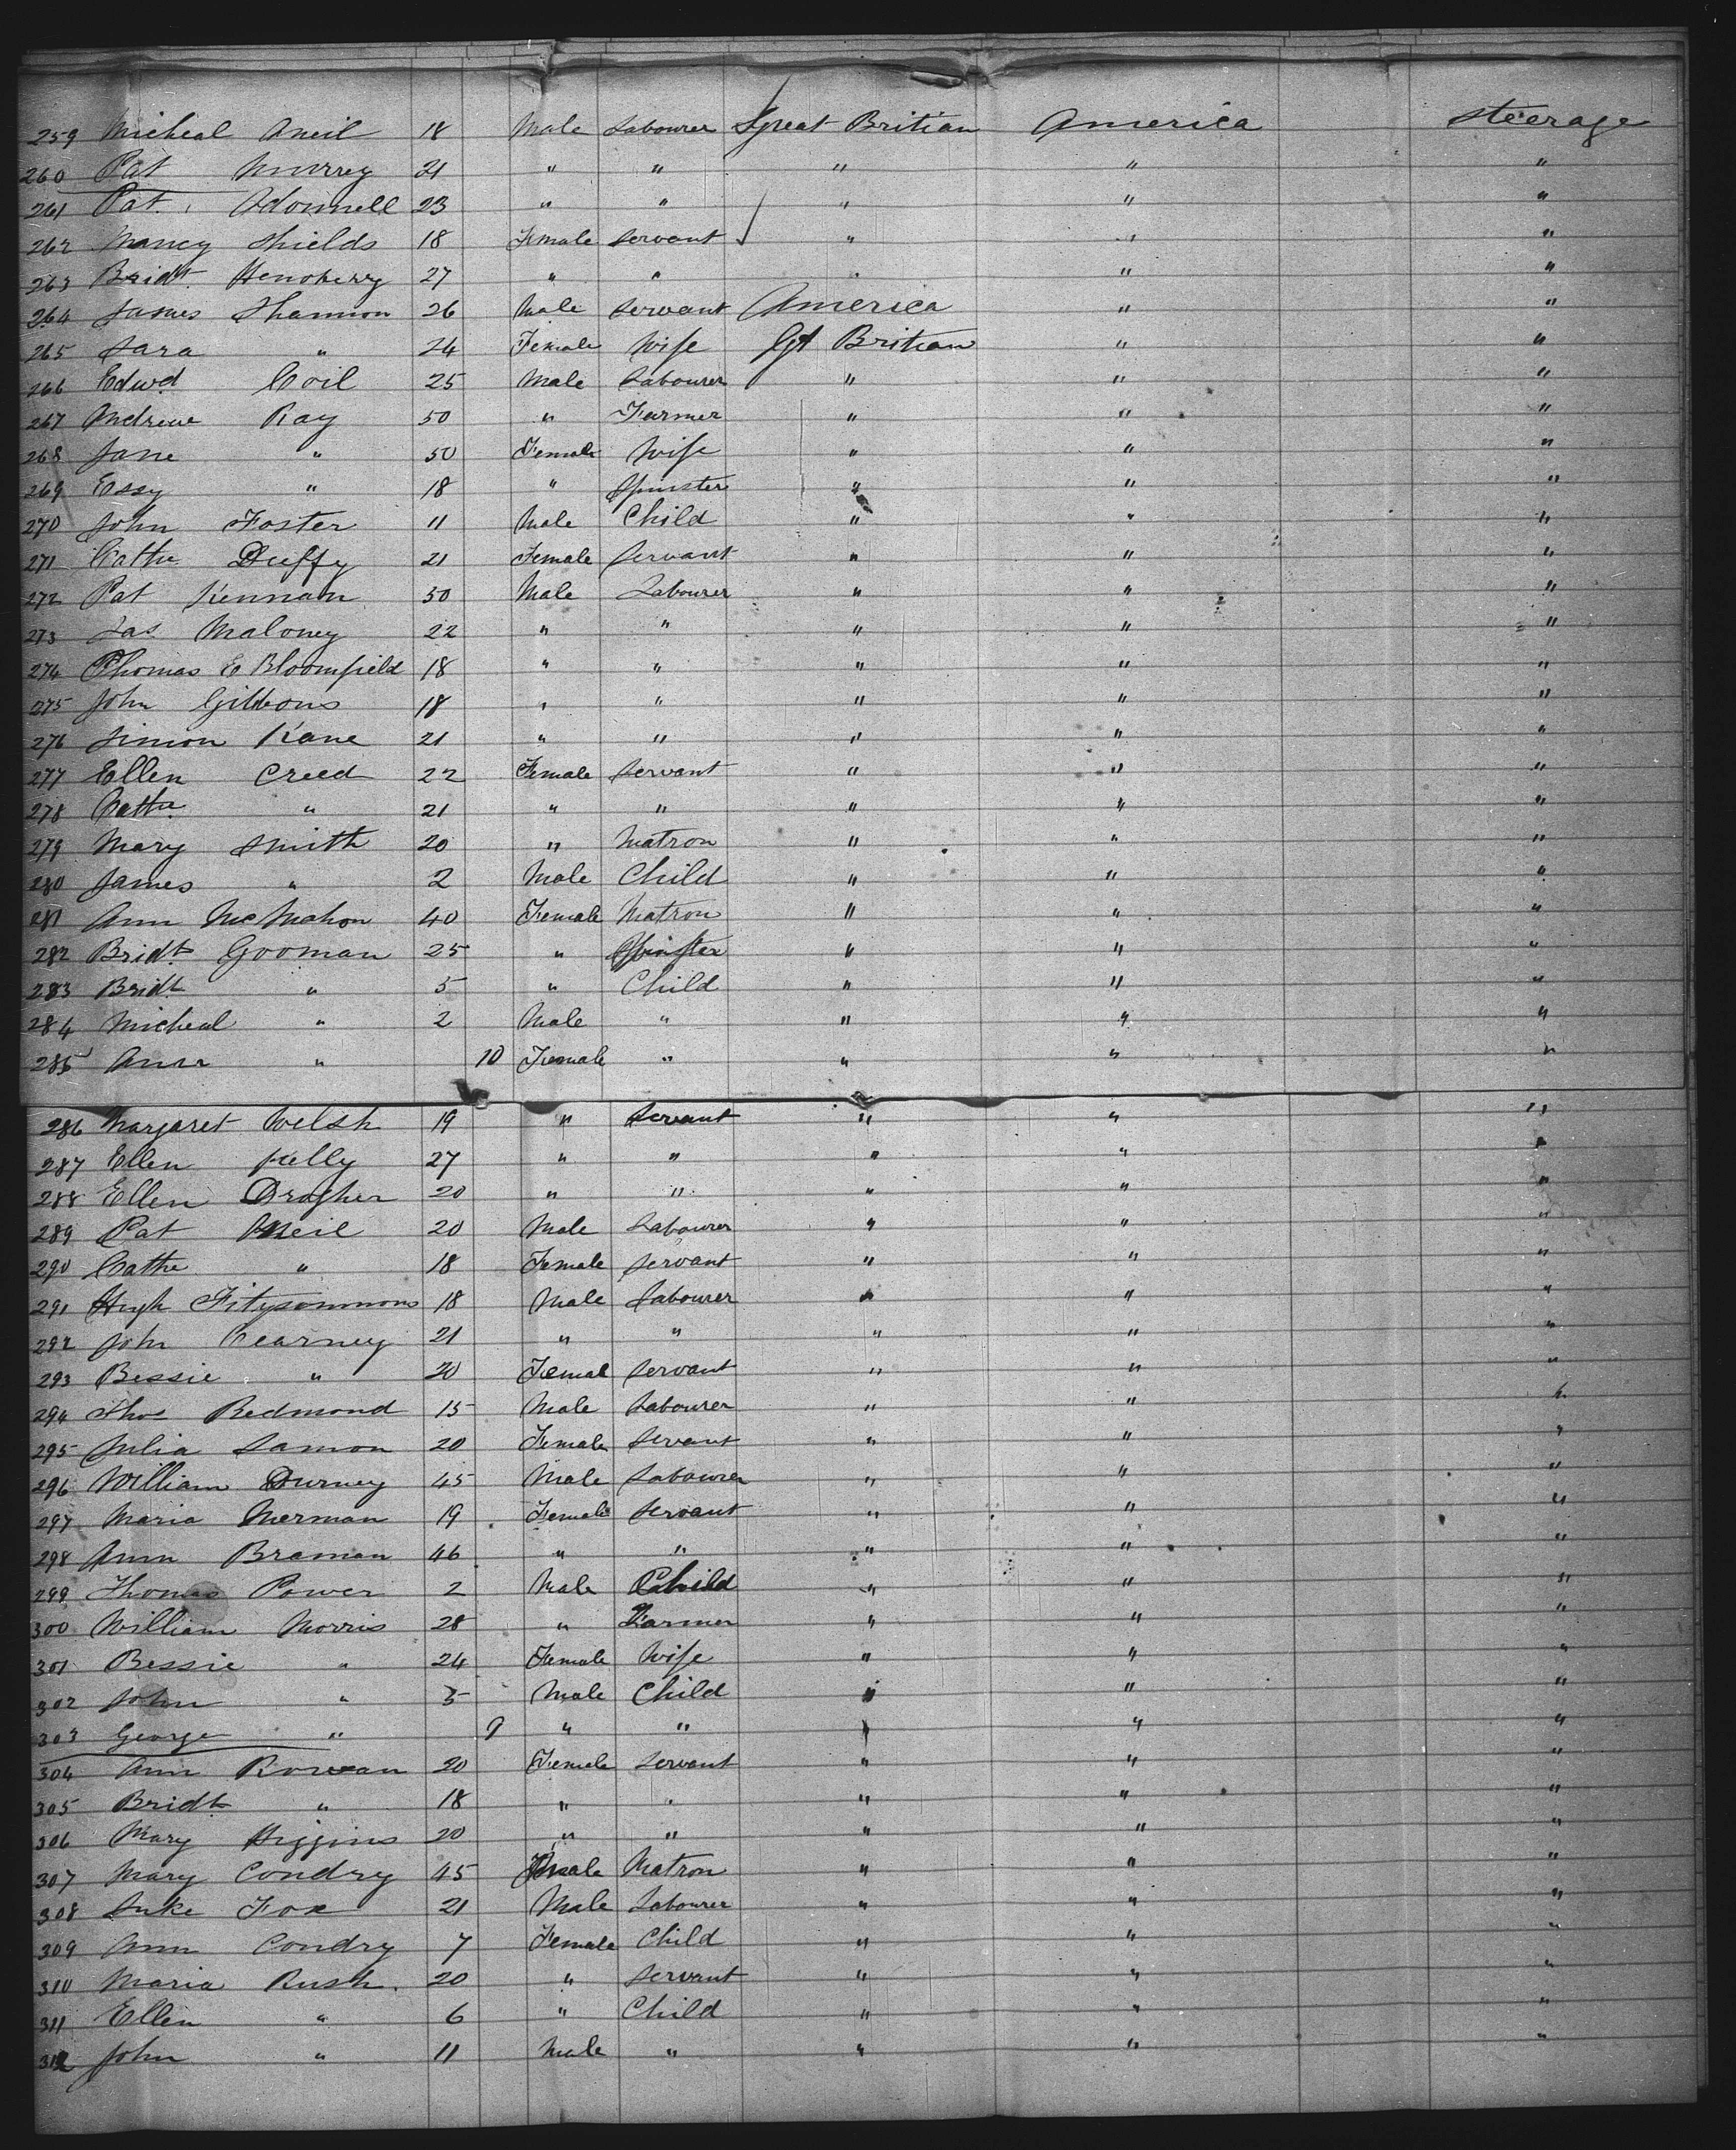 259 Micheal Aneil 18 Male Labourer Great Britian America Steerage
260 Pat Murrey 21 " " " " "
261 Pat. Odonnell 23 " " " " "
262 Nancy Shields 18 Female Servant " " "
263 Bridt. Henoberry 27 " " " " "
264 James Shannon 26 Male Servant America " "
265 Sara " 24 Female Wife Gt Britian " "
266 Edwd Coil 25 Male Labourer " " "
267 Andrew Ray 50 " Farmer " " "
268 Jane " 50 Female Wife " " "
269 Essy " 18 " Spinster " " "
270 John Foster 11 Male Child " " "
271 Cathe Duffy 21 Female Servant " " "
272 Pat Kennan 50 Male Labourer " " "
273 Jas Maloney 22 " " " " "
274 Thomas E Bloomfield 18 " " " " "
275 John Gibbons 18 " " " " "
276 Simon Kane 21 " " " " "
277 Ellen Creed 22 Female Servant " " "
278 Cathe " 21 " " " " "
279 Mary Smith 20 " Matron " " "
280 James " 2 Male Child " " "
281 Ann McMahon 40 Female Matron " " "
282 Bridt Gooman 25 " Spinster " " "
283 Bridt " 5 " Child " " "
284 Micheal " 2 Male " " " "
285 Ann " 10 Female " " " "
286 Margaret Welsh 19 " Servant " " "
287 Ellen Jully 27 " " " " "
288 Ellen Dragher 20 " " " " "
289 Pat Neil 20 Male Labourer " " "
290 Cathe " 18 Female Servant " " "
291 Hugh Fitysommons 18 Male Labourer " " "
292 John Cearney 21 " " " " "
293 Bessie " 20 Femal Servant " " "
294 Thos Redmond 15 Male Labourer " " "
295 Julia Lamon 20 Female Servant " " "
296 William Durney 45 Male Labourer " " "
297 Maria Merman 19 Female Servant " " "
298 Ann Braman 46 " " " " "
299 Thomas Power 2 Male Child " " "
300 William Morris 28 " Farmer " " "
301 Bessie " 24 Female Wife " " "
302 John " 5 Male Child " " "
303 George " 9 " " " " "
304 Ann Rowan 20 Female Servant " " "
305 Bridt " 18 " " " " "
306 Mary Higgins 20 " " " " "
307 Mary Condry 45 Female Matron " " "
308 Luke Fox 21 Male Labourer " " "
309 Ann Condry 7 Female Child " " "
310 Maria Rush. 20 " Servant " " "
311 Ellen " 6 " Child " " "
312 John " 11 Male " " " "